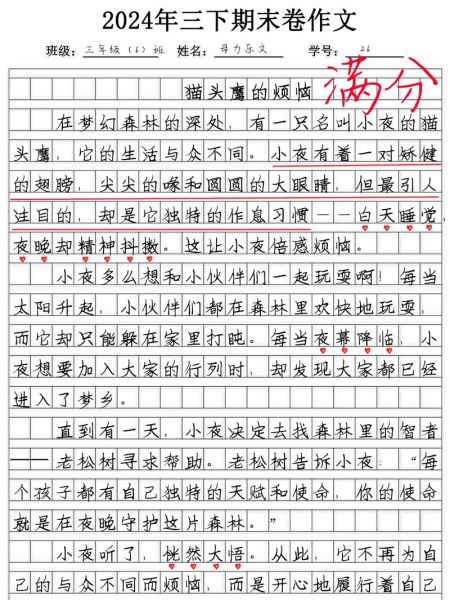 2024年三下期末卷作文
班级：三年级（6）班 姓名：母力乐文 学号：26
猫头鹰的烦恼
满分
在梦幻森林的深处，有一只名叫小夜的猫
头鹰，它的生活与众不同。小夜有着一对矫健
的翅膀，尖尖的喙和圆圆的大眼睛，但最引人
注目的，却是它独特的作息习惯——白天睡觉，
夜晚却精神抖擞。这让小夜倍感烦恼。
小夜多么想和小伙伴们一起玩耍啊！每当
太阳升起，小伙伴们都在森林里欢快地玩耍，
而它却只能躲在家里打盹。每当夜幕降临，小
夜想要加入大家的行列时，却发现大家都已经
进入了梦乡。
直到有一天，小夜决定去找森林里的智者
——老松树寻求帮助。老松树告诉小夜：“每
个孩子都有自己独特的天赋和使命，你的使命
就是在夜晚守护这片森林。”
小夜听了，恍然大悟。从此，它不再为自
己的与众不同而烦恼，而是开心地履行着自己